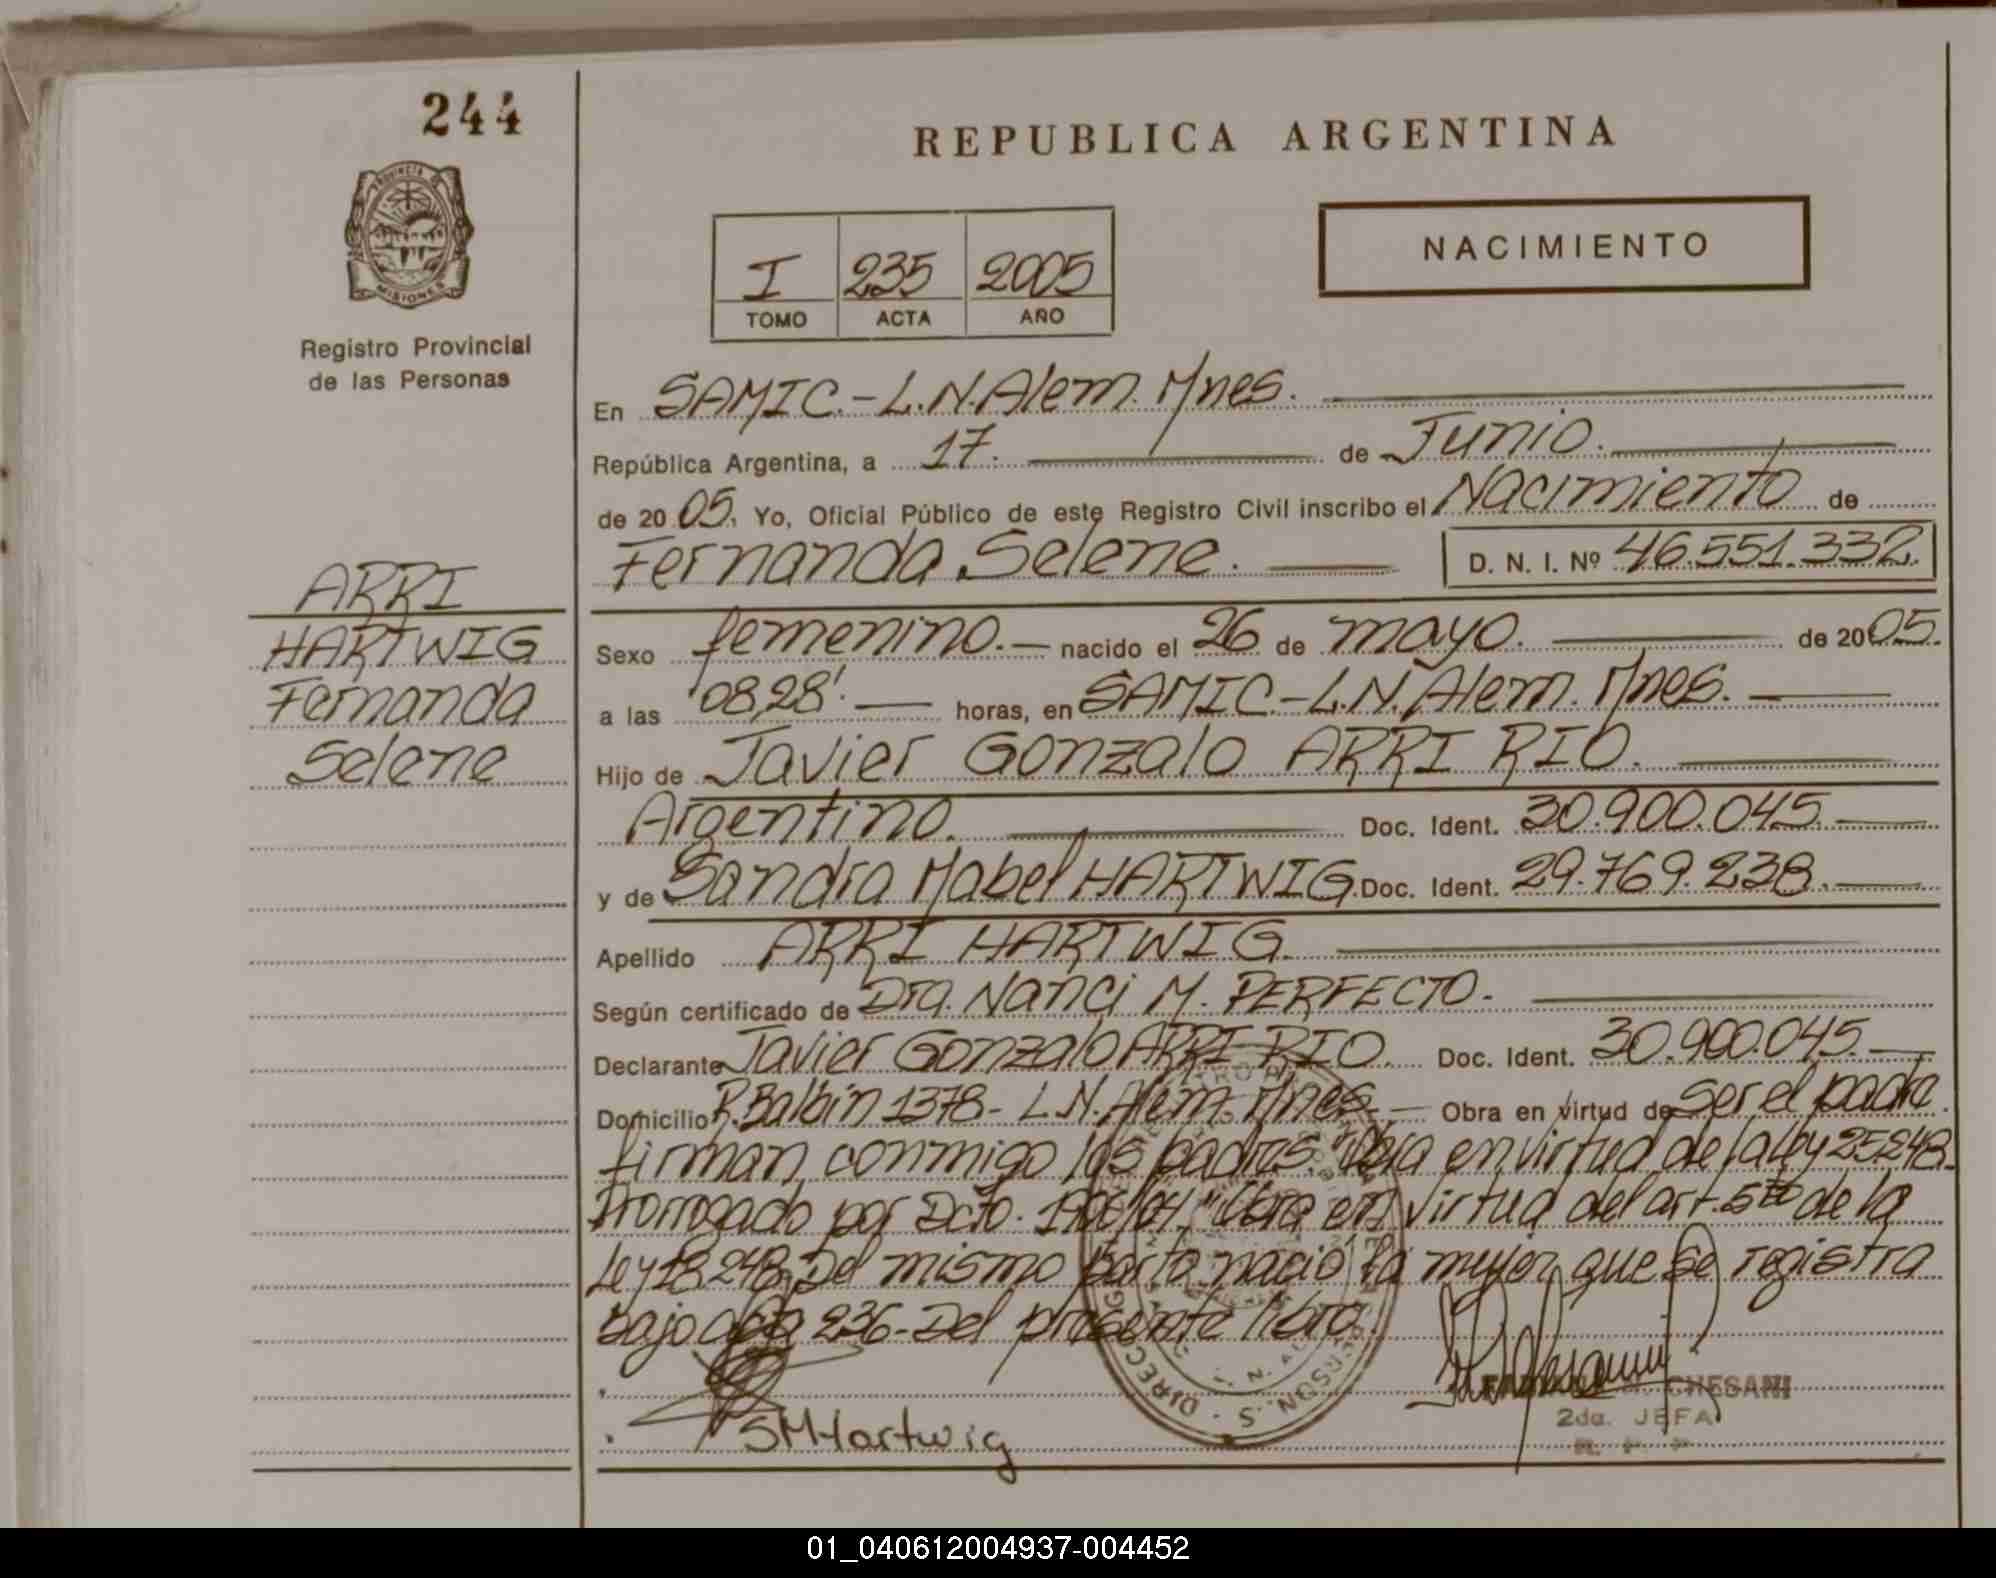 244
REPUBLICA ARGENTINA
PROVINCIA DE
MISIONES
Registro Provincial
de las Personas
NACIMIENTO
I 235 2005
TOMO ACTA AÑO
En SAMIC.-L.N.Alem. Mnes.
República Argentina, a 17. de Junio.
de 20 05. Yo, Oficial Público de este Registro Civil inscribo el Nacimiento de
Fernanda Selene. D. N. I. Nº 46.551.332.
ARRI
HARTWIG
Fernanda
Selene
Sexo femenino. nacido el 26 de mayo. de 20 05.
a las 08,28'. horas, en SAMIC.-L.N.Alem. Mnes.
Hijo de Javier Gonzalo ARRI RIO.
Argentino. Doc. Ident. 30.900.045.
y de Sandra Mabel HARTWIG. Doc. Ident. 29.769.238.
Apellido ARRI HARTWIG.
Según certificado de Dra. Nanci M. PERFECTO.
Declarante Javier Gonzalo ARRI RIO. Doc. Ident. 30.900.045.
Domicilio R.Balbin 1378- L.N.Alem Mnes.- Obra en virtud de ser el padre.
firman conmigo los padres. "Obra en virtud de la Ley 25248.
Prorrogado por Dcto. 1906/04." Obra en virtud del art. 5to de la
Ley 18.248. Del mismo parto nació la mujer que se registra
bajo acta 236- Del presente libro.
SMHartwig
CHESANI
2da. JEFA
R. P. P
01_040612004937-004452